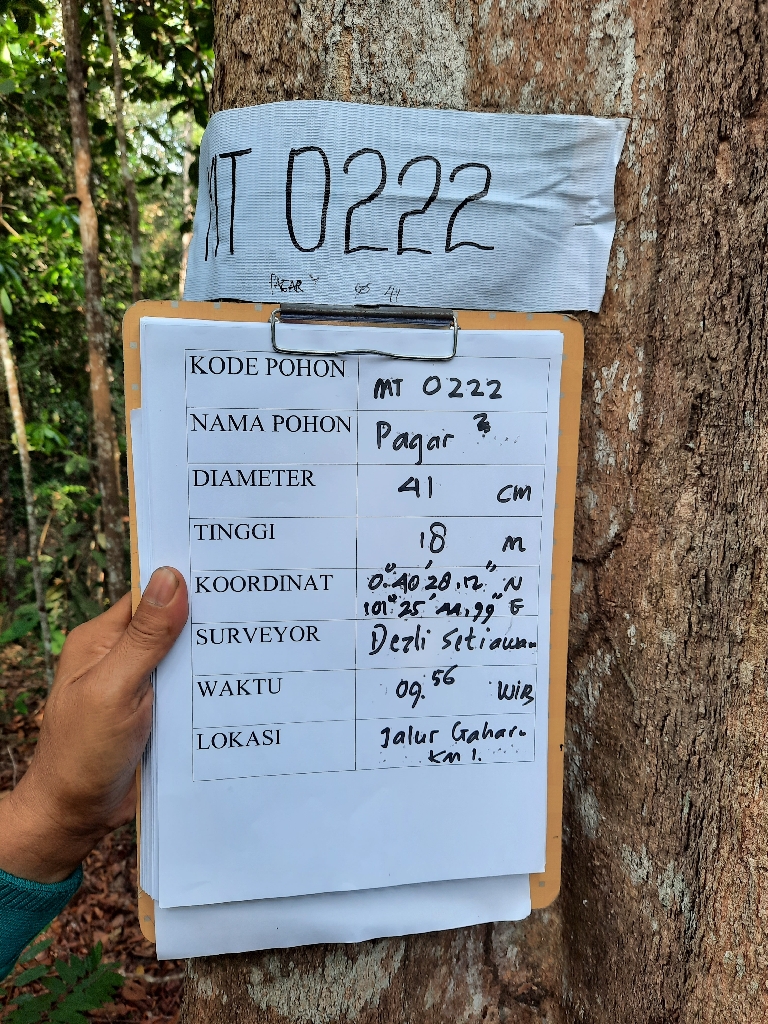 MT 0222
PAGAR 2 41
KODE POHON MT 0222
NAMA POHON Pagar 2
DIAMETER 41 cm
TINGGI 18 m
KOORDINAT 0°40'28,12" N
101°25'44,99" E
SURVEYOR Dezli Setiawan
WAKTU 09.56 WIB
LOKASI Jalur Gaharu
KM 1.